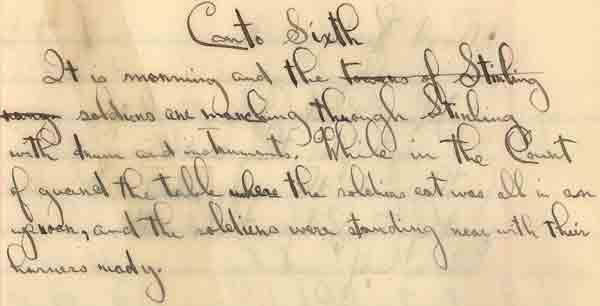 Canto Sixth
It is morning and the towers of Stirling
soldiers are marching through Stirling
with drum and instruments. While in the Court
of guard the table where the soldiers eat was all in an
uproar, and the soldiers were standing near with their
harness ready.